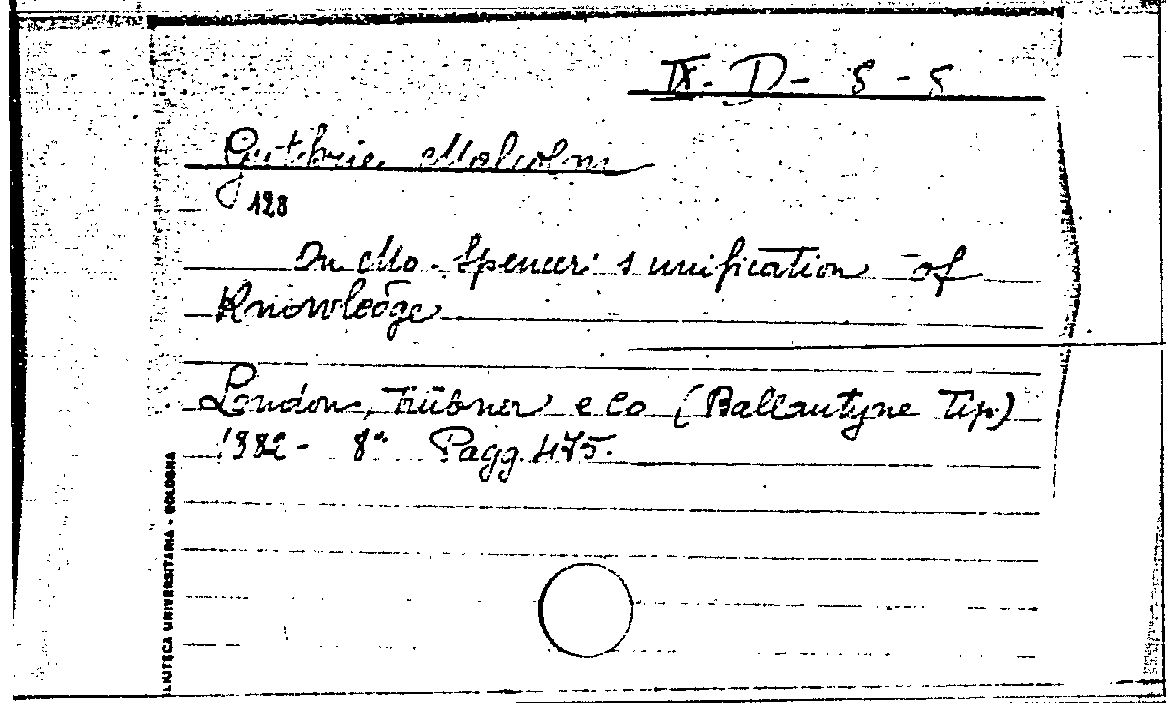 IX. D - 5 - 5
Guthrie Malcolm
128
On Mo. Spencer's unification of
Knowledge
London, Trübner e Co (Ballantyne Tip.)
1882 - 8° Pagg. 475.
BIBLIOTECA UNIVERSITARIA - BOLOGNA